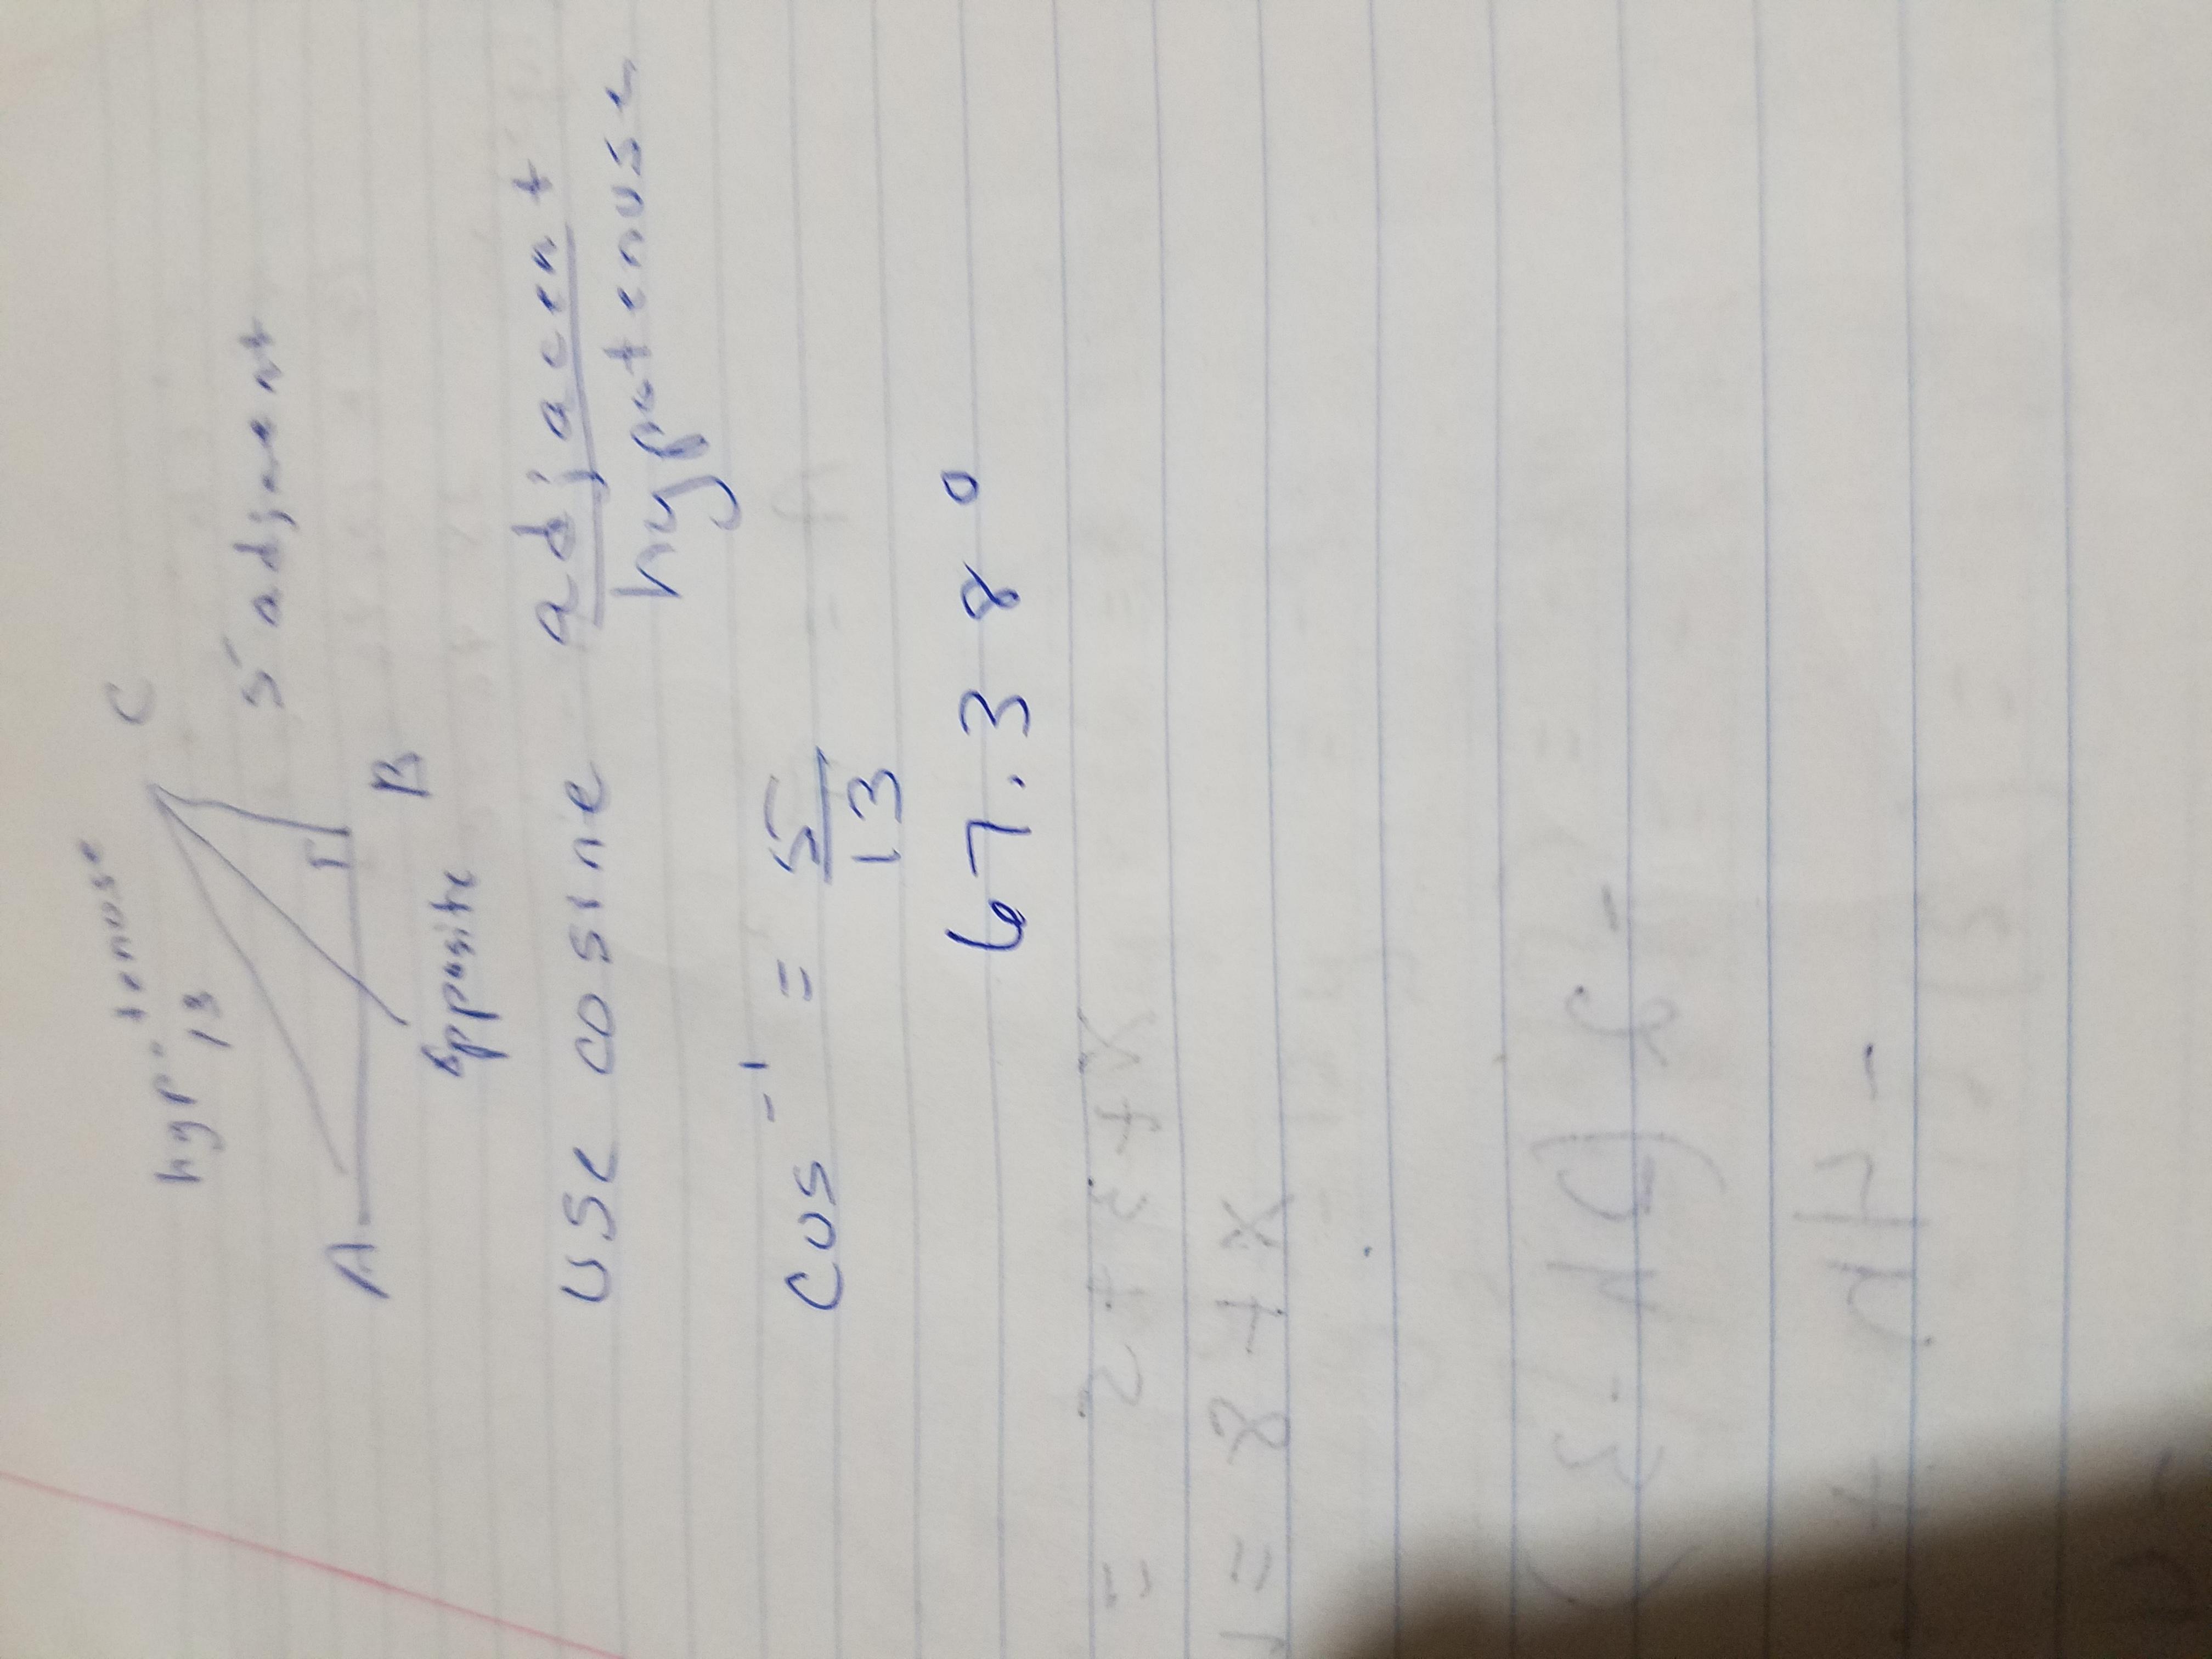 hypotenuse
13
C
5 adjacent
A
B
opposite
use cosine adjacent
hypotenuse
cos⁻¹ = 5
13
67.38°